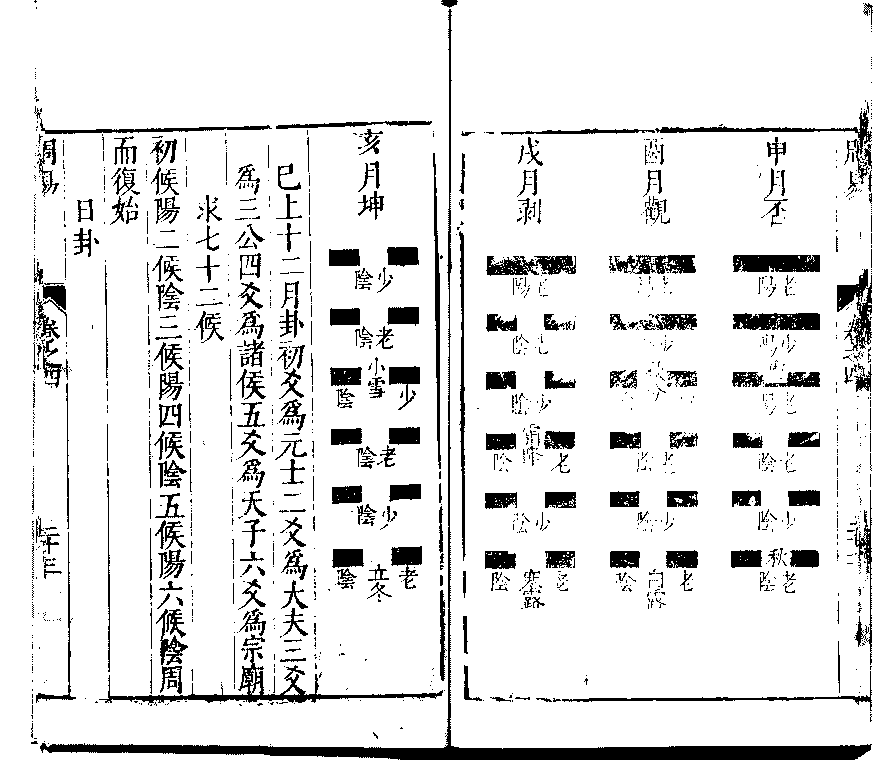 申月否
老陽
少陽
老陽
老陰
少陰
秋
老陰
酉月觀
老陰
少陰
白露
老陰
戌月剝
老陽
少陰
霜降
老陰
少陰
寒露
老陰
亥月坤
少陰
老陰
小雪
少陰
老陰
少陰
立冬
老陰
已上十二月卦初爻為元士二爻為大夫三爻
為三公四爻為諸侯五爻為天子六爻為宗廟
求七十二候
初候陽二候陰三候陽四候陰五候陽六候陰周
而復始
日卦
周易
卷之四